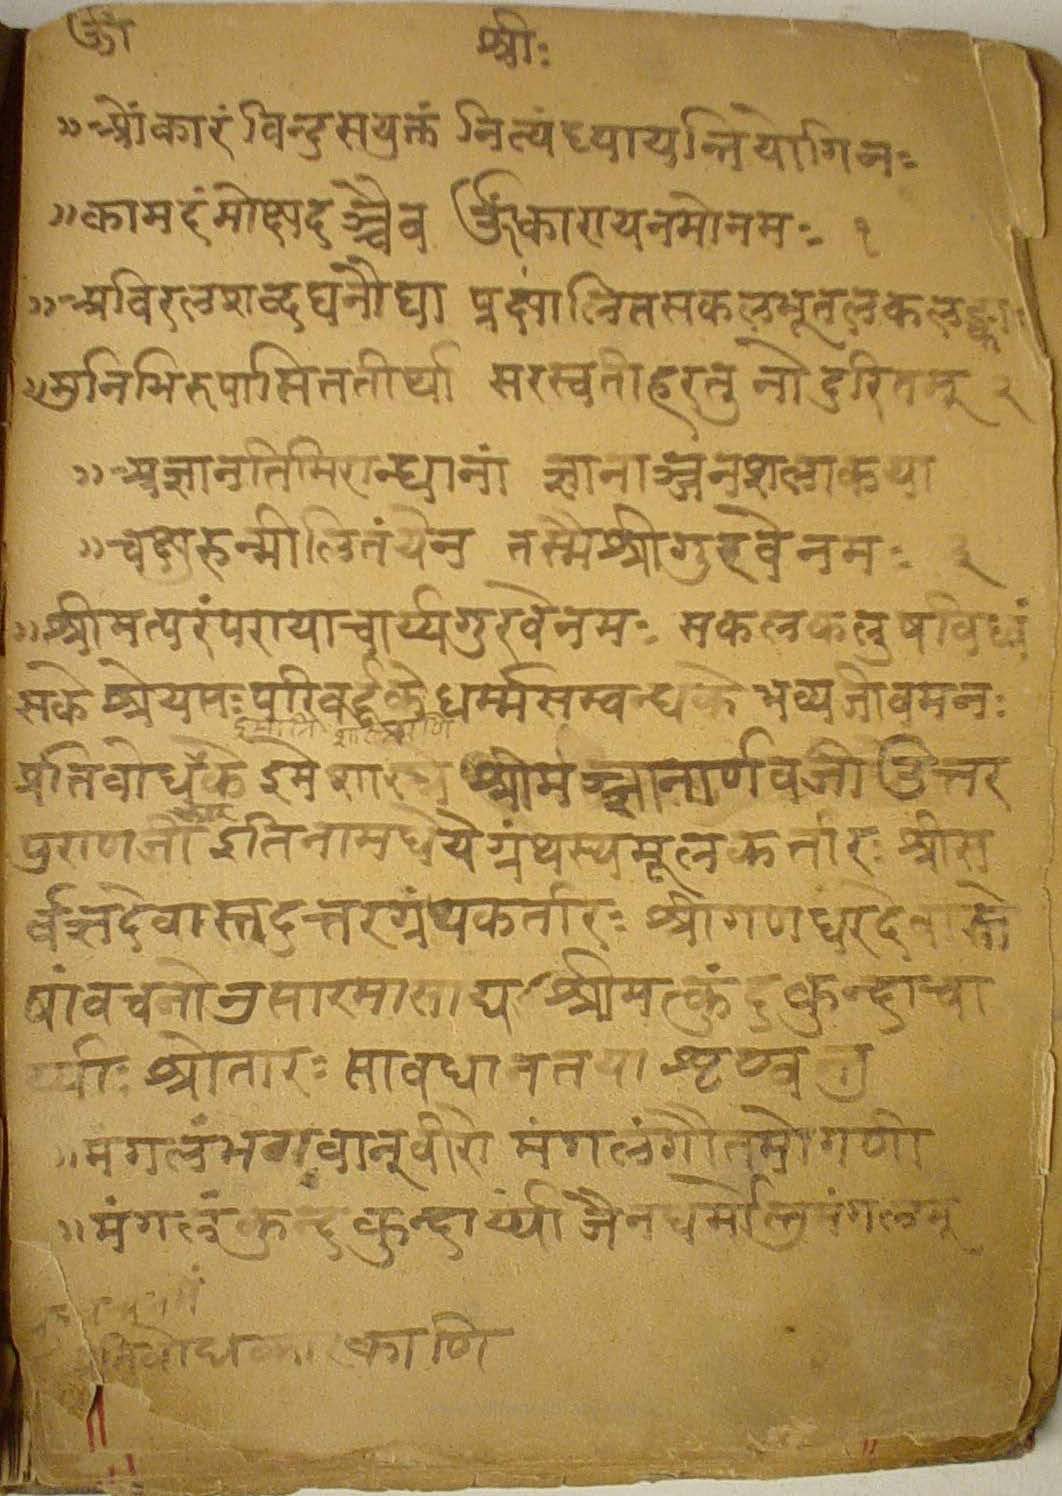 ॐ श्रीः
"ओंकारं विन्दुसयुक्तं नित्यंध्यायन्तियोगिनः
"कामदंमोक्षदञ्चैव ॐकारायनमोनमः १
"अविरलशव्दघनौघा प्रक्षालितसकलभूतलकलङ्काः
"मुनिभिरुपासिततीर्था सरस्वतीहरतु नोदुरितम् २
"अज्ञानतिमिरान्धानां ज्ञानाञ्जनशलाकया
"चक्षुरुन्मीलितंयेन तस्मैश्रीगुरवेनमः ३
"श्रीमत्परंपरायाचार्य्यगुरवेनमः सकलकलुषविध्वं
सके श्रेयसःपरिवर्द्धके धर्म्मसम्वन्धके भव्यजीवमनः
प्रतिवोधके इमे श्रीमज्ज्ञानार्णवजी उत्तर
पुराणजी इतिनामधेये ग्रंथस्यमूलकर्तारः श्रीस
र्वज्ञदेवास्तदुत्तरग्रंथकर्तारः श्रीगणधरदेवास्ते
षांवचनोनुसारमासाद्य श्रीमत्कुंदकुन्दाचा
र्य्याः श्रोतारः सावधानतया शृण्वन्तु
"मंगलंभगवान्वीरो मंगलंगौतमोगणी
"मंगलंकुन्दकुन्दार्य्यो जैनधर्मोस्तुमंगलम्